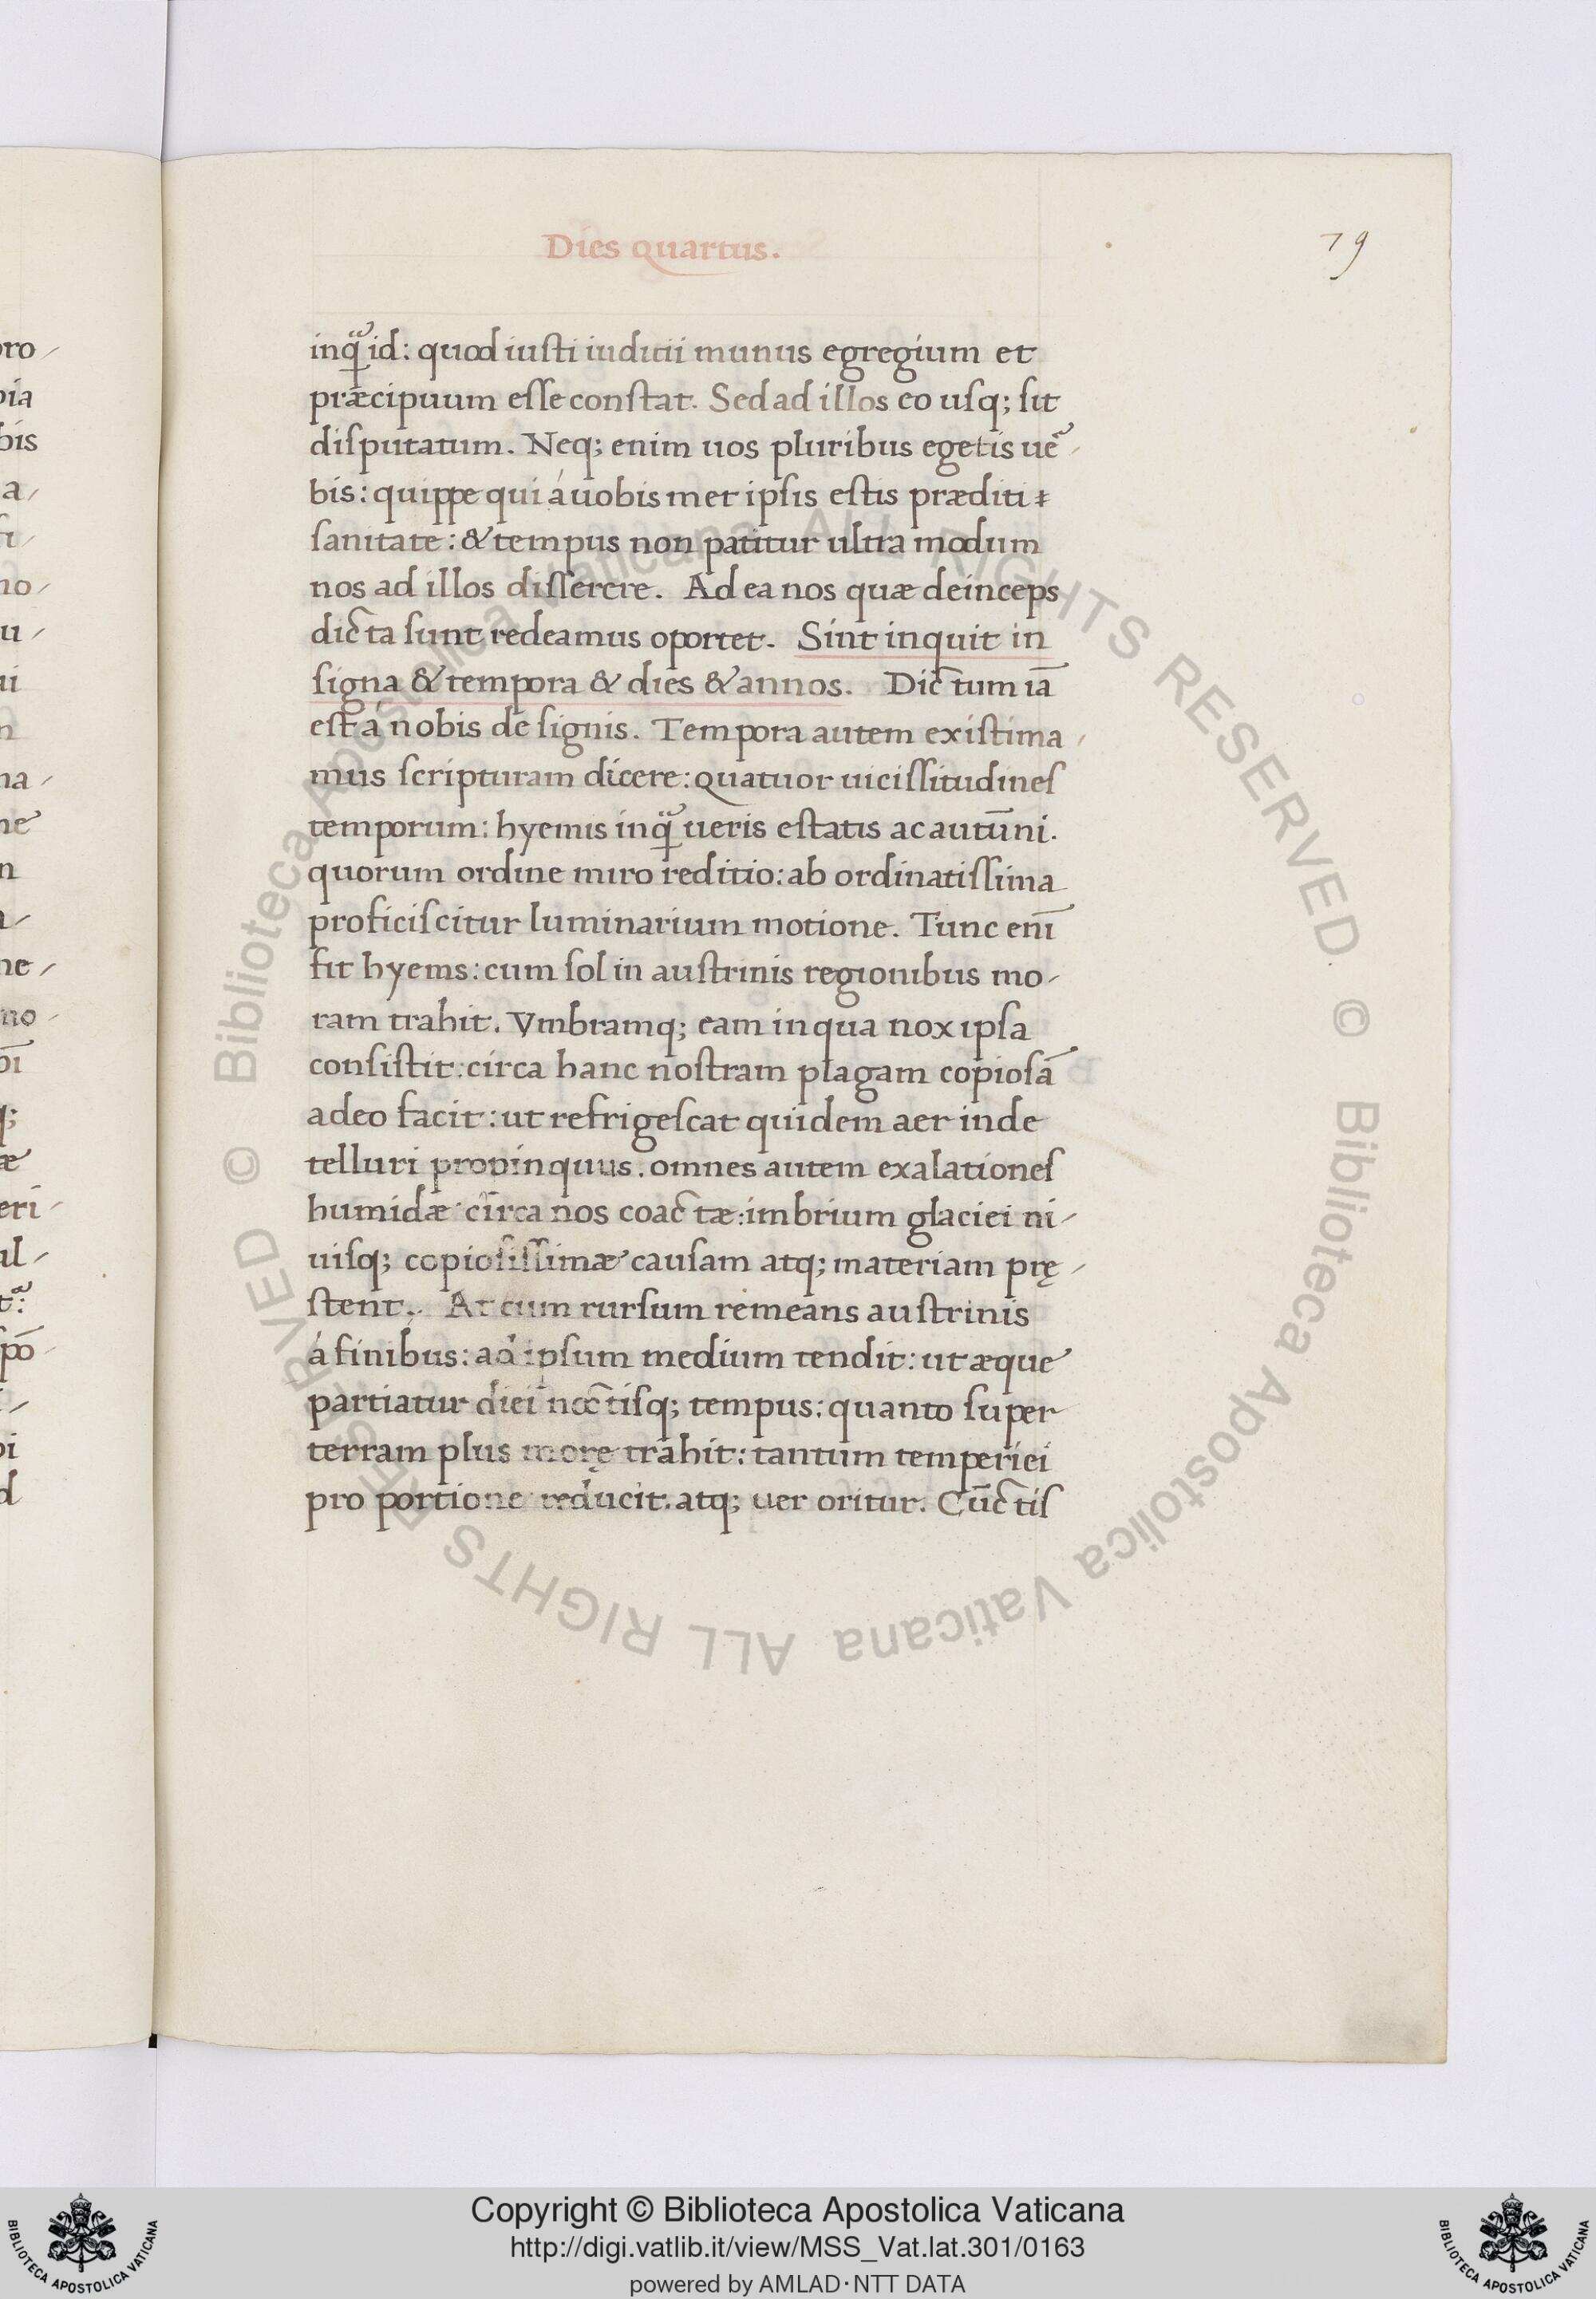 Dies quartus.
79
inqͣ̃ id: quod iusti iuditii munus egregium et
præcipuum esse constat. Sed ad illos eo usq; sit
disputatum. Neq; enim uos pluribus egetis ue᷑
bis: quippe qui á uobis met ipsis estis præditi
sanitate: & tempus non patitur ultra modum
nos ad illos disserere. Ad ea nos quæ deinceps
dicta sunt redeamus oportet. Sint inquit in
signa & tempora & dies & annos. Dictum iā
est á nobis de signis. Tempora autem existima
mus scripturam dicere: quatuor uicissitudines
temporum: hyemis inqͣ̃ ueris estatis ac autūni.
quorum ordine miro reditio: ab ordinatissima
proficiscitur luminarium motione. Tunc enī
fit hyems: cum sol in austrinis regionibus mo-
ram trahit. Vmbramq; eam in qua nox ipsa
consistit: circa hanc nostram plagam copiosā
adeo facit: ut refrigescat quidem aer inde
telluri propinquus. omnes autem exalationes
humidæ circa nos coactæ: imbrium glaciei ni-
uisq; copiosissimæ causam atq; materiam prę-
stent. At cum rursum remeans austrinis
á finibus: ad ipsum medium tendit: ut æque
partiatur diei noctisq; tempus: quanto super
terram plus morę trahit: tantum temperiei
pro portione reducit. atq; uer oritur. Cūctis
© Biblioteca Apostolica Vaticana ALL RIGHTS RESERVED
© Biblioteca Apostolica Vaticana ALL RIGHTS RESERVED
Copyright © Biblioteca Apostolica Vaticana
http://digi.vatlib.it/view/MSS_Vat.lat.301/0163
powered by AMLAD·NTT DATA
BIBLIOTECA APOSTOLICA VATICANA
BIBLIOTECA APOSTOLICA VATICANA